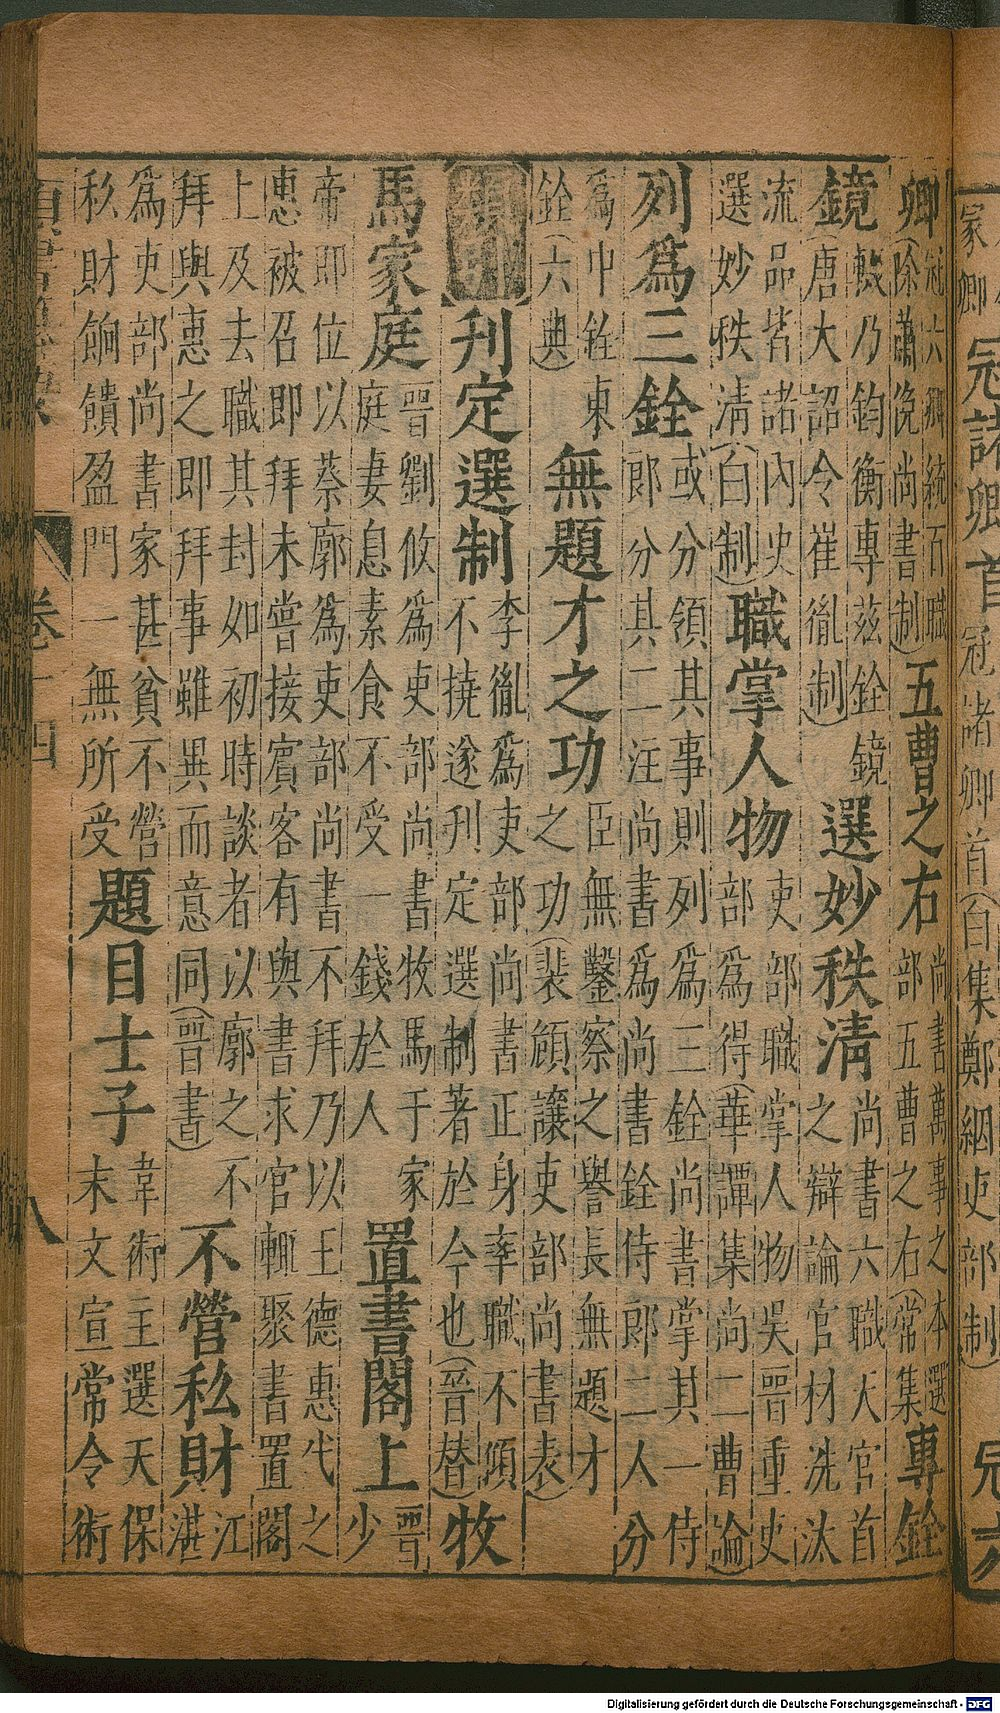 家卿 冠諸卿首 冠諸卿首(白集鄭絪吏部制) 冠六
卿 冠六卿統百職(除蕭俛尚書制) 五曹之右 尚書萬事之本選部五曹之右(常集) 專銓
鏡 輟乃鈞衡專茲銓鏡(唐大詔令崔胤制) 選妙秩清 尚書六職天官首之辯論官材洗汰
流品皆諸內史選妙秩清(白制) 職掌人物 吏部職掌人物吳晉重史部為得(華譚集尚二曹論)
列為三銓 或分領其事則列為三銓尚書掌其一侍郎分其二注尚書為尚書銓侍郎二人分
為中銓東銓(六典) 無題才之功 臣無鑿察之譽長無題才之功(裴頠讓吏部尚書表)
類記 刋定選制 李胤為吏部尚書正身率職不傾不撓遂刋定選制著於今也(晉替) 牧
馬家庭 晉劉攸為吏部尚書牧馬于家庭妻息素食不受一錢於人 置書閣上 晉少
帝即位以蔡廓為吏部尚書不拜乃以王德惠代之惠被召即拜未嘗接賓客有與書求官輒聚書置閣
上及去職其封如初時談者以廓之不拜與惠之即拜事雖異而意同(晉書) 不營私財 江湛
為吏部尚書家甚貧不營私財餉饋盈門一無所受 題目士子 韋術主選天保末文宣常令術
卷十四
八
Digitalisierung gefördert durch die Deutsche Forschungsgemeinschaft - DFG